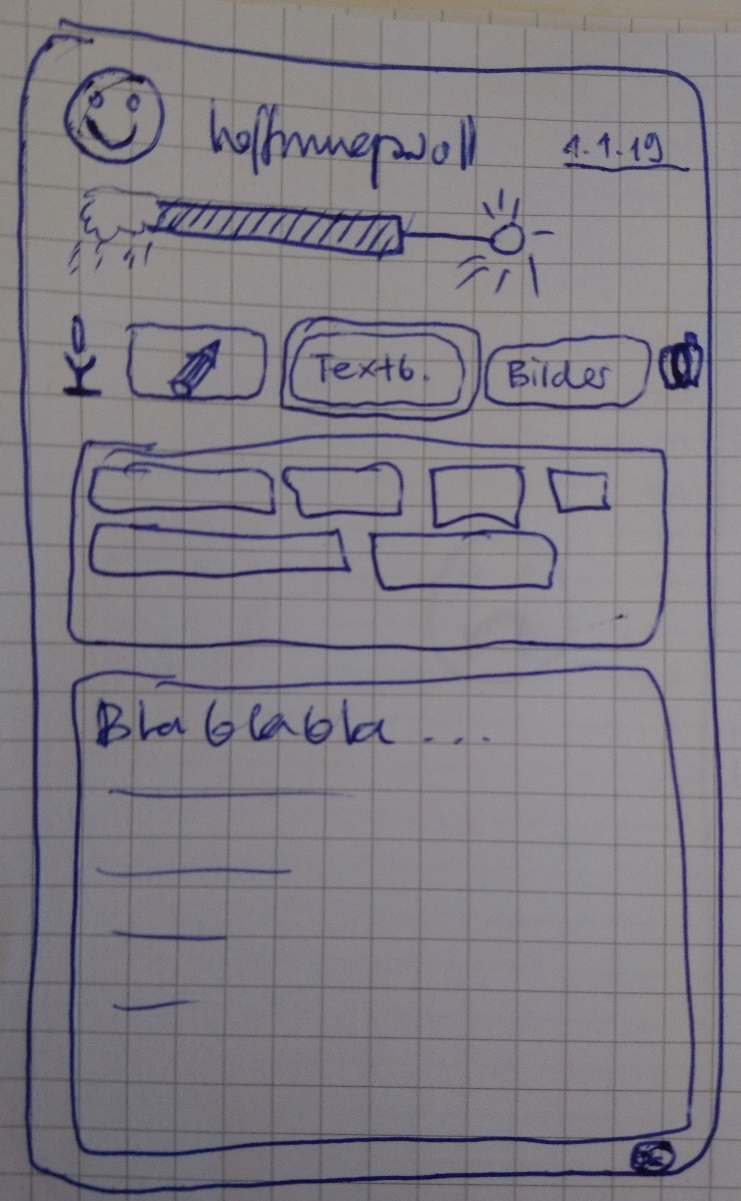 hoffnungsvoll 1.1.19
Textb. Bilder
Bla blabla ...